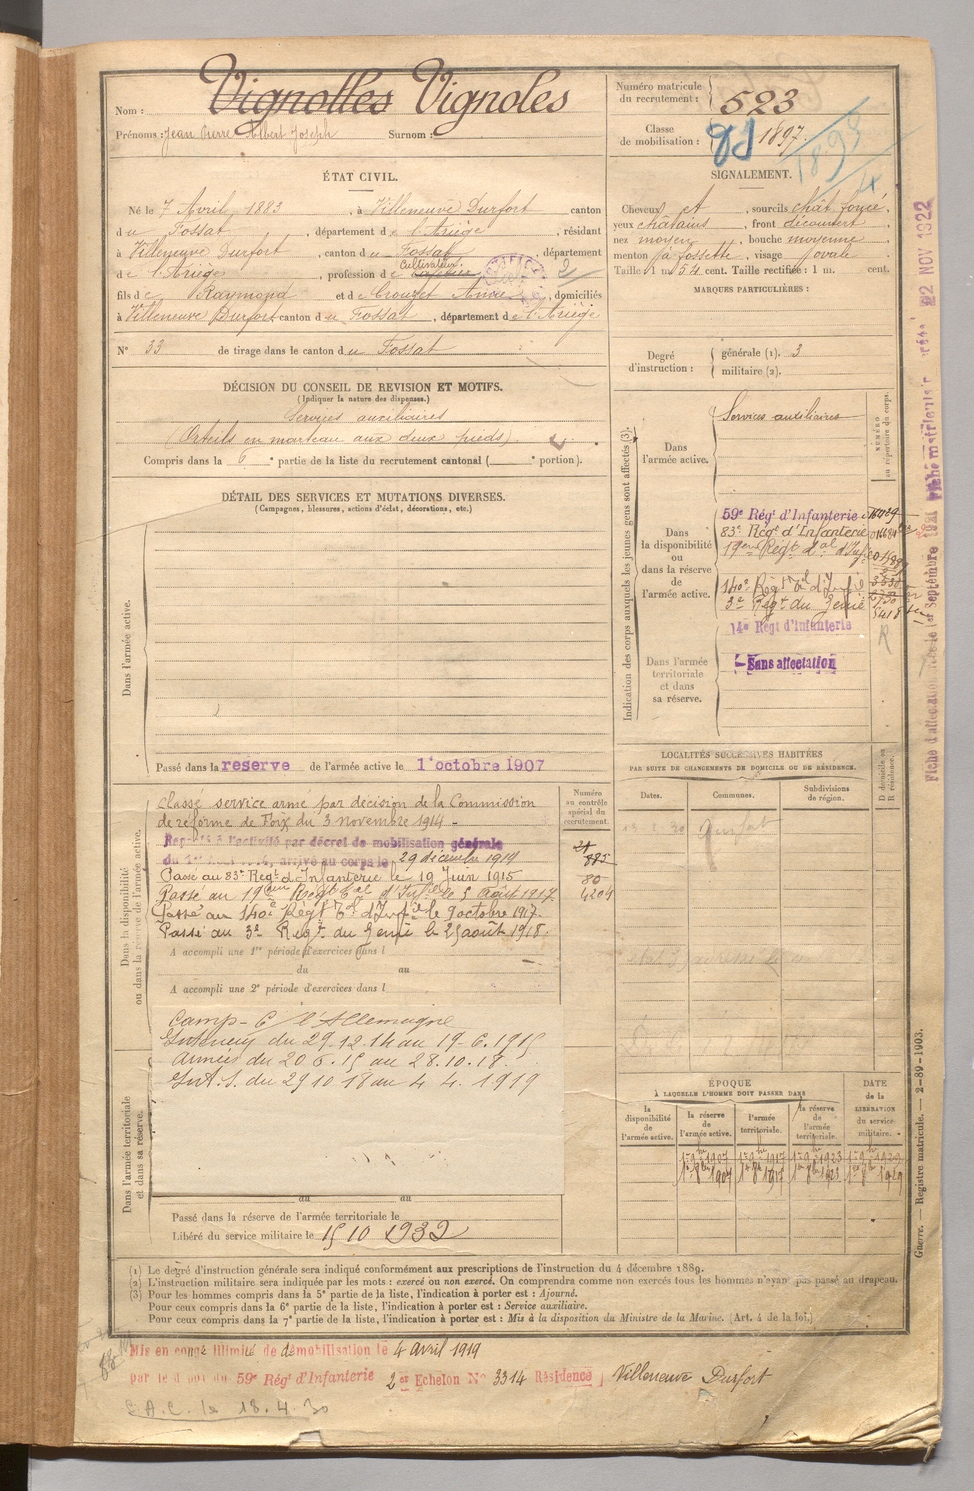 Nom : Vignolles Vignoles
Prénoms : Jean Pierre Albert Joseph Surnom :
Numéro matricule du recrutement : 523
Classe de mobilisation : 1897
1893
4
ÉTAT CIVIL.
Né le 7 Avril 1883, à Villeneuve Durfort canton
du Fossat, département de l'Ariège, résidant
à Villeneuve Durfort, canton du Fossat, département
de l'Ariège, profession de Cultivateur
fils de Raymond et de Crouzet Anne, domiciliés
à Villeneuve Durfort canton du Fossat, département de l'Ariège
N° 33 de tirage dans le canton du Fossat
SIGNALEMENT.
Cheveux et, sourcils chât foncé,
yeux châtains, front découvert
nez moyen, bouche moyenne
menton à fossette, visage ovale
Taille 1 m. 54 cent. Taille rectifiée : 1 m. cent.
MARQUES PARTICULIÈRES :
Degré d'instruction : générale (1). 3
militaire (2).
DÉCISION DU CONSEIL DE REVISION ET MOTIFS.
(Indiquer la nature des dispenses.)
Services auxiliaires
(Orteils en marteau aux deux pieds).
Compris dans la 6e partie de la liste du recrutement cantonal ( e portion).
DÉTAIL DES SERVICES ET MUTATIONS DIVERSES.
(Campagnes, blessures, actions d'éclat, décorations, etc.)
Dans l'armée active.
Passé dans la reserve de l'armée active le 1er octobre 1907
Indication des corps auxquels les jeunes gens sont affectés (3).
NUMÉRO au répertoire du corps.
Dans l'armée active.
Services auxiliaires
Dans la disponibilité ou dans la réserve de l'armée active.
59e Régt d'Infanterie
83e Régt d'Infanterie
19eme Régt al d'Inf
140e Régt al d'Infie
3e Régt du Genie
14e Régt d'Infanterie
Dans l'armée territoriale et dans sa réserve.
Sans affectation
R
Fiche matricule 22 NOV 1922
Fiche d'affectation 1er Septembre 1921
LOCALITÉS SUCCESSIVES HABITÉES
PAR SUITE DE CHANGEMENTS DE DOMICILE OU DE RÉSIDENCE.
Dates. Communes. Subdivisions de région. D domicile ou R résidence.
30 Durfort
Dans la disponibilité ou dans la réserve de l'armée active.
Numéro au contrôle spécial du recrutement.
Classé service armé par décision de la Commission
de réforme de Foix du 3 novembre 1914 -
Rappelé à l'activité par décret de mobilisation générale
du 1er arrivé au corps le 29 décembre 1914
885
Passé au 83e Régt d'Infanterie le 19 Juin 1915
80
Passé au 19eme Régt al d'Infie le 5 Août 1917.
4204
Passé au 140e Régt al d'Infie le 9 octobre 1917.
Passé au 3e Régt du Genie le 25 août 1918.
A accompli une 1re période d'exercices dans l
du au
A accompli une 2e période d'exercices dans l
Camp- C/ l'Allemagne
Intérieur du 29.12.14 au 19.6.1915
Armées du 20.6.15 au 28.10.18.
Int. S. du 29 10 18 au 4 4.1919
Dans l'armée territoriale et dans sa réserve.
du au
Passé dans la réserve de l'armée territoriale le
Libéré du service militaire le 15 10 1932
ÉPOQUE
À LAQUELLE L'HOMME DOIT PASSER DANS
la disponibilité de l'armée active.
la réserve de l'armée active.
l'armée territoriale.
la réserve de l'armée territoriale.
DATE de la LIBÉRATION du service militaire.
Guerre. — Registre matricule. — 2-89-1903.
(1) Le degré d'instruction générale sera indiqué conformément aux prescriptions de l'instruction du 4 décembre 1889.
(2) L'instruction militaire sera indiquée par les mots : exercé ou non exercé. On comprendra comme non exercés tous les hommes n'ayant pas passé au drapeau.
(3) Pour les hommes compris dans la 5e partie de la liste, l'indication à porter est : Ajourné.
Pour ceux compris dans la 6e partie de la liste, l'indication à porter est : Service auxiliaire.
Pour ceux compris dans la 7e partie de la liste, l'indication à porter est : Mis à la disposition du Ministre de la Marine. (Art. 4 de la loi.)
Mis en congé illimité de démobilisation le 4 avril 1919
par le dépôt du 59e Régt d'Infanterie 2e Echelon N° 3314 Résidence Villeneuve Durfort
A.C. le 18.4.30